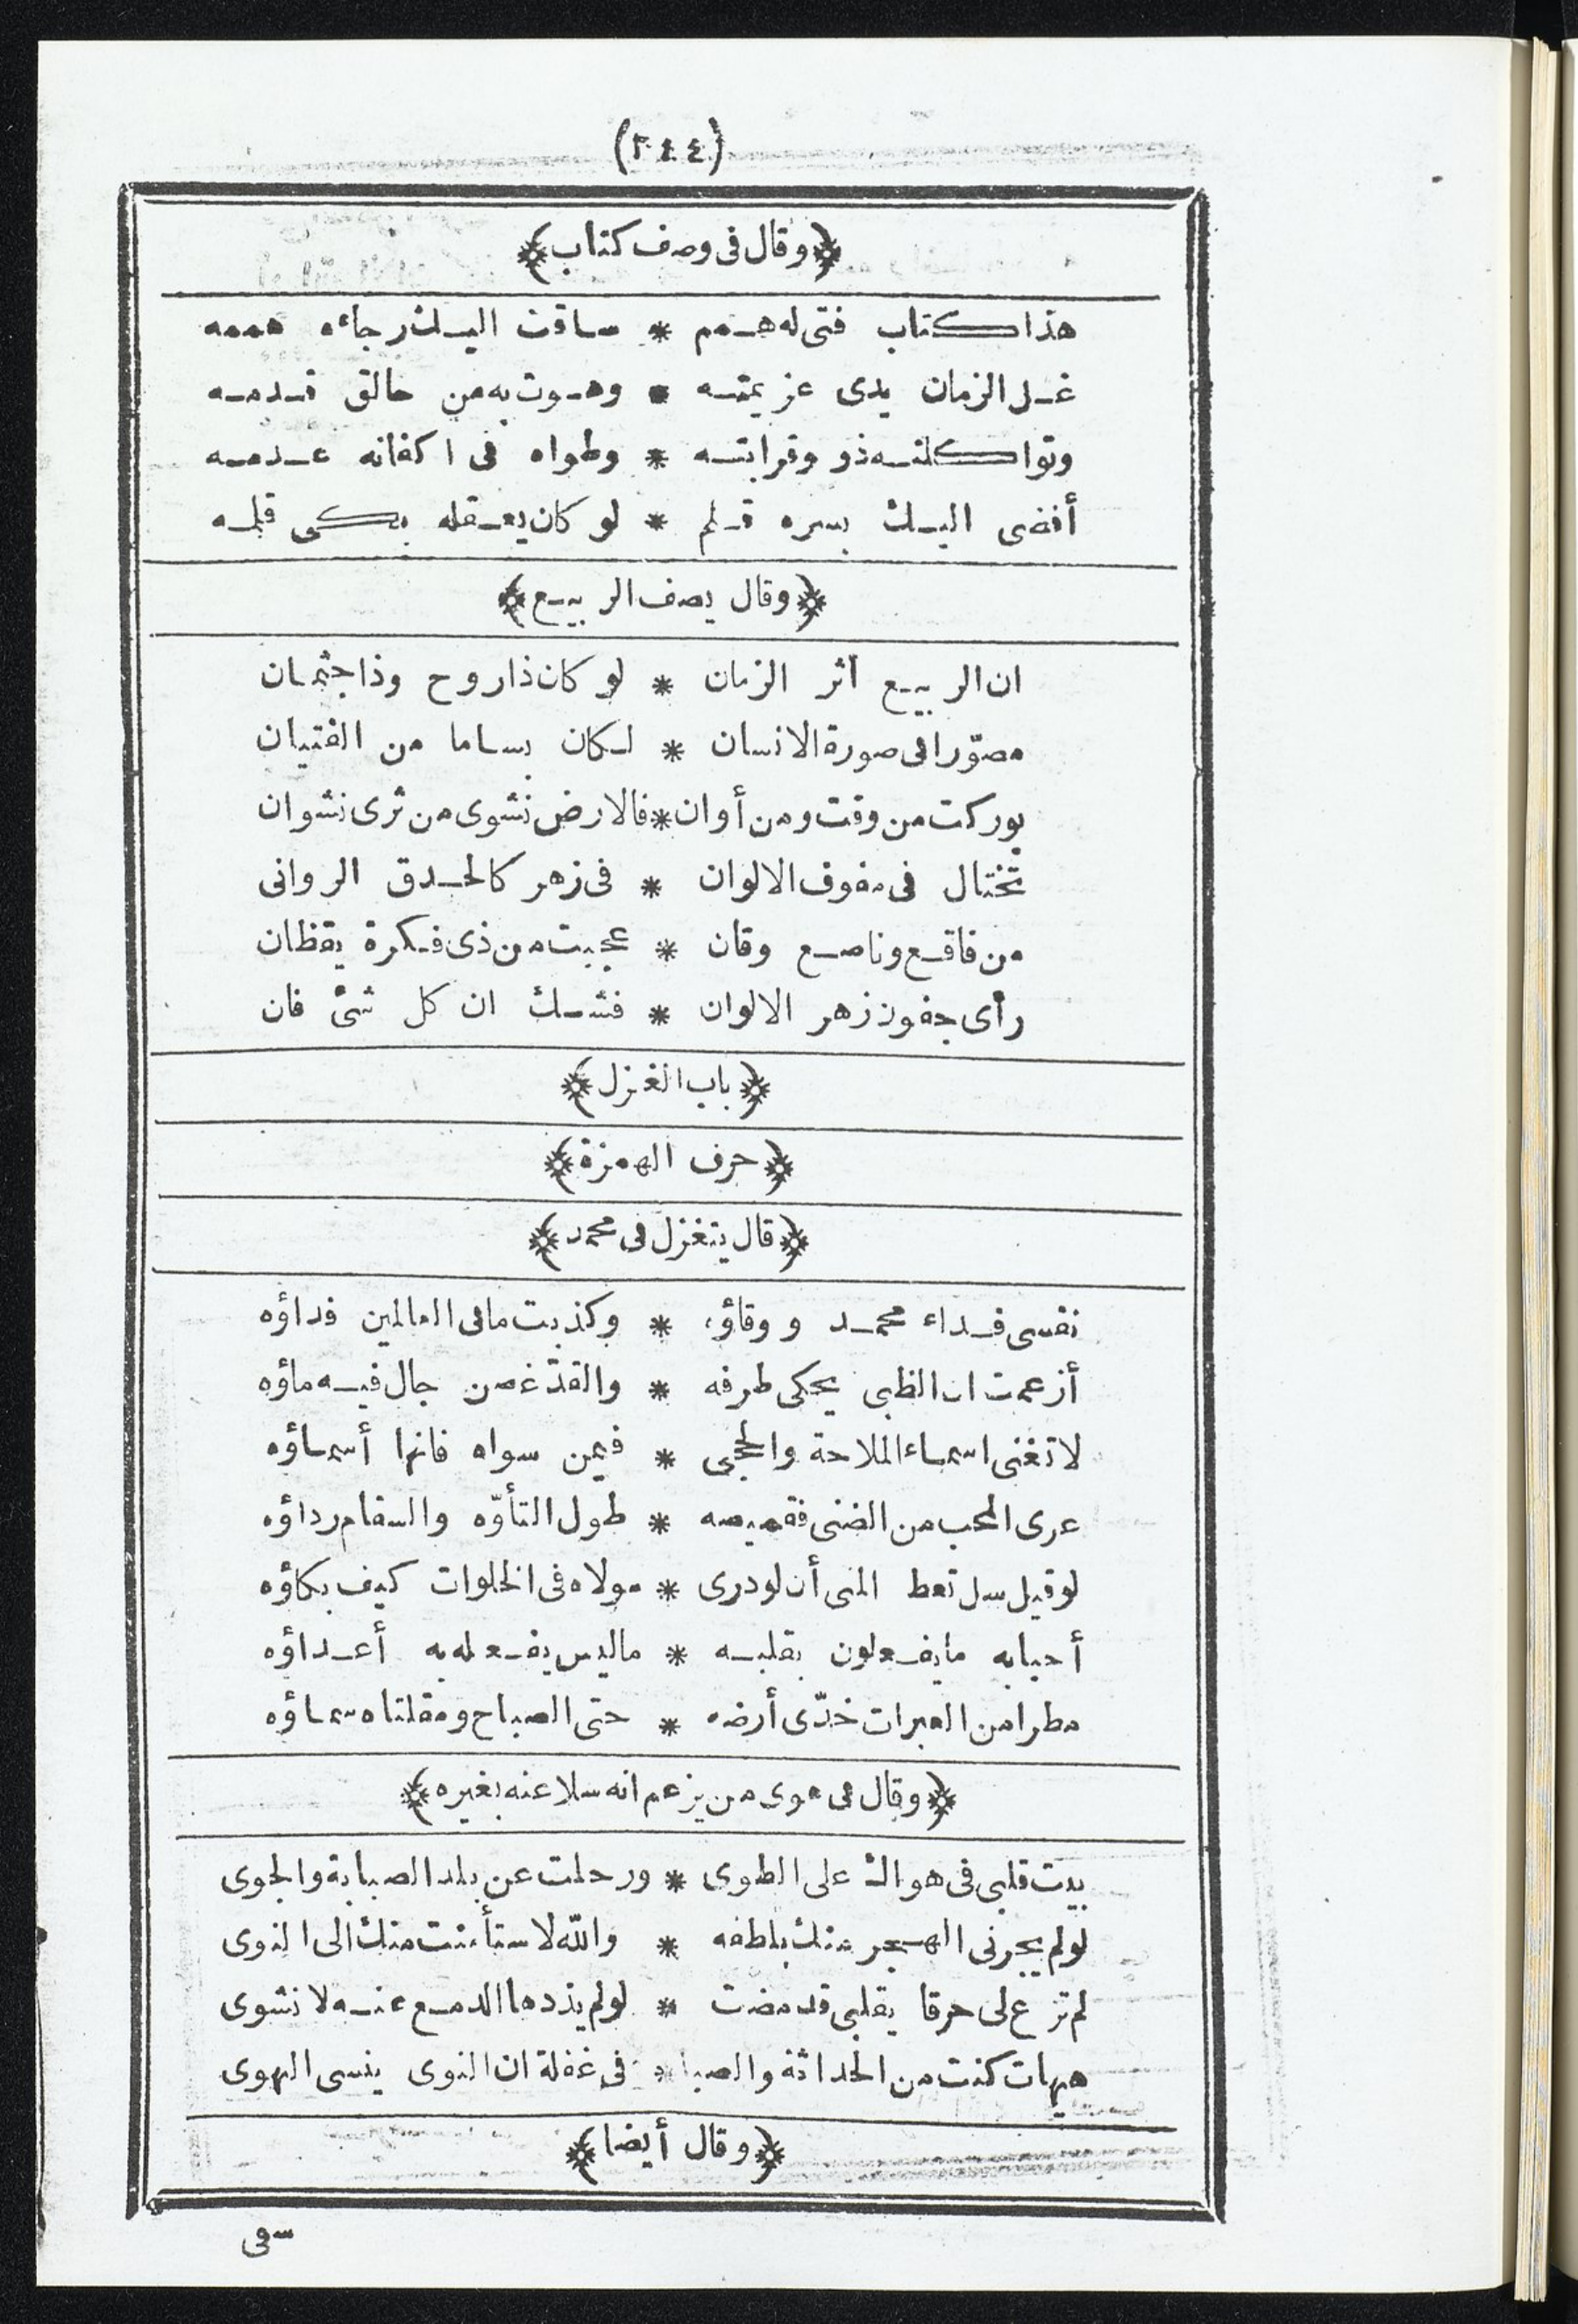 (٣٤٤)
﴿وقال فى وصف كتاب﴾
هذا كتاب فتى له همم * ساقت اليك رجاءه هممه
غل الزمان يدى عزيمته * وهوت به من حالق قدمه
وتواكلته ذو وقرابته * وطواه فى اكفانه عدمه
أفضى اليك بسره قلم * لو كان يعقله بكى قلمه
﴿وقال يصف الربيع﴾
ان الربيع أثر الزمان * لو كان ذا روح وذا جثمان
مصوّرا فى صورة الانسان * لكان بساما من الفتيان
بوركت من وقت ومن أوان * فالارض نشوى من ثرى نشوان
تختال فى مفوف الالوان * فى زهر كالحدق الروانى
من فاقع وناصع وقان * عجبت من ذى فكرة يقظان
رأى جفون زهر الالوان * فشك ان كل شئ فان
﴿باب الغزل﴾
﴿حرف الهمزة﴾
﴿قال يتغزل فى محمد﴾
نفسى فداء محمد ووقاؤه * وكذبت ما فى العالمين فداؤه
أزعمت ان الظبى يحكى طرفه * والقدّ غصن جال فيه ماؤه
لا تغنى اسماء الملاحة والحجى * فيمن سواه فانها أسماؤه
عرى المحب من الضنى فقميصه * طول التأوّه والسقام رداؤه
لو قيل سل تعط المنى أن لو درى * مولاه فى الخلوات كيف بكاؤه
أحبابه ما يفعلون بقلبه * ما ليس يفعله به أعداؤه
مطرا من العبرات خدّى أرضه * حتى الصباح ومقلتاه سماؤه
﴿وقال فى هوى من يزعم انه سلا عنه بغيره﴾
بيت قلبى فى هواك على الطوى * ورحلت عن بلد الصبابة والجوى
لو لم يجرنى الهجر منك بلطفه * والله لاستأمنت منك الى النوى
لم ترع لى حرقا بقلبى قد مضت * لو لم يذدها الدمع عنه لانشوى
هيهات كنت من الحداثة والصبا * فى غفلة ان النوى ينسى الهوى
﴿وقال أيضا﴾
سقى